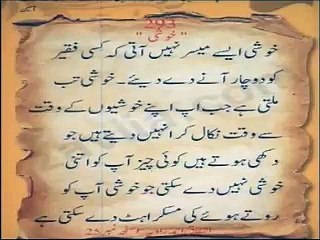 "خوشی"
خوشی ایسے میسر نہیں آتی کہ کسی فقیر
کو دو چار آنے دے دیئے۔ خوشی تب
ملتی ہے جب آپ اپنے خوشیوں کے وقت
سے وقت نکال کر انہیں دیتے ہیں جو
دکھی ہوتے ہیں کوئی چیز آپ کو اتنی
خوشی نہیں دے سکتی جو خوشی آپ کو
روتے ہوئے کی مسکراہٹ دے سکتی ہے